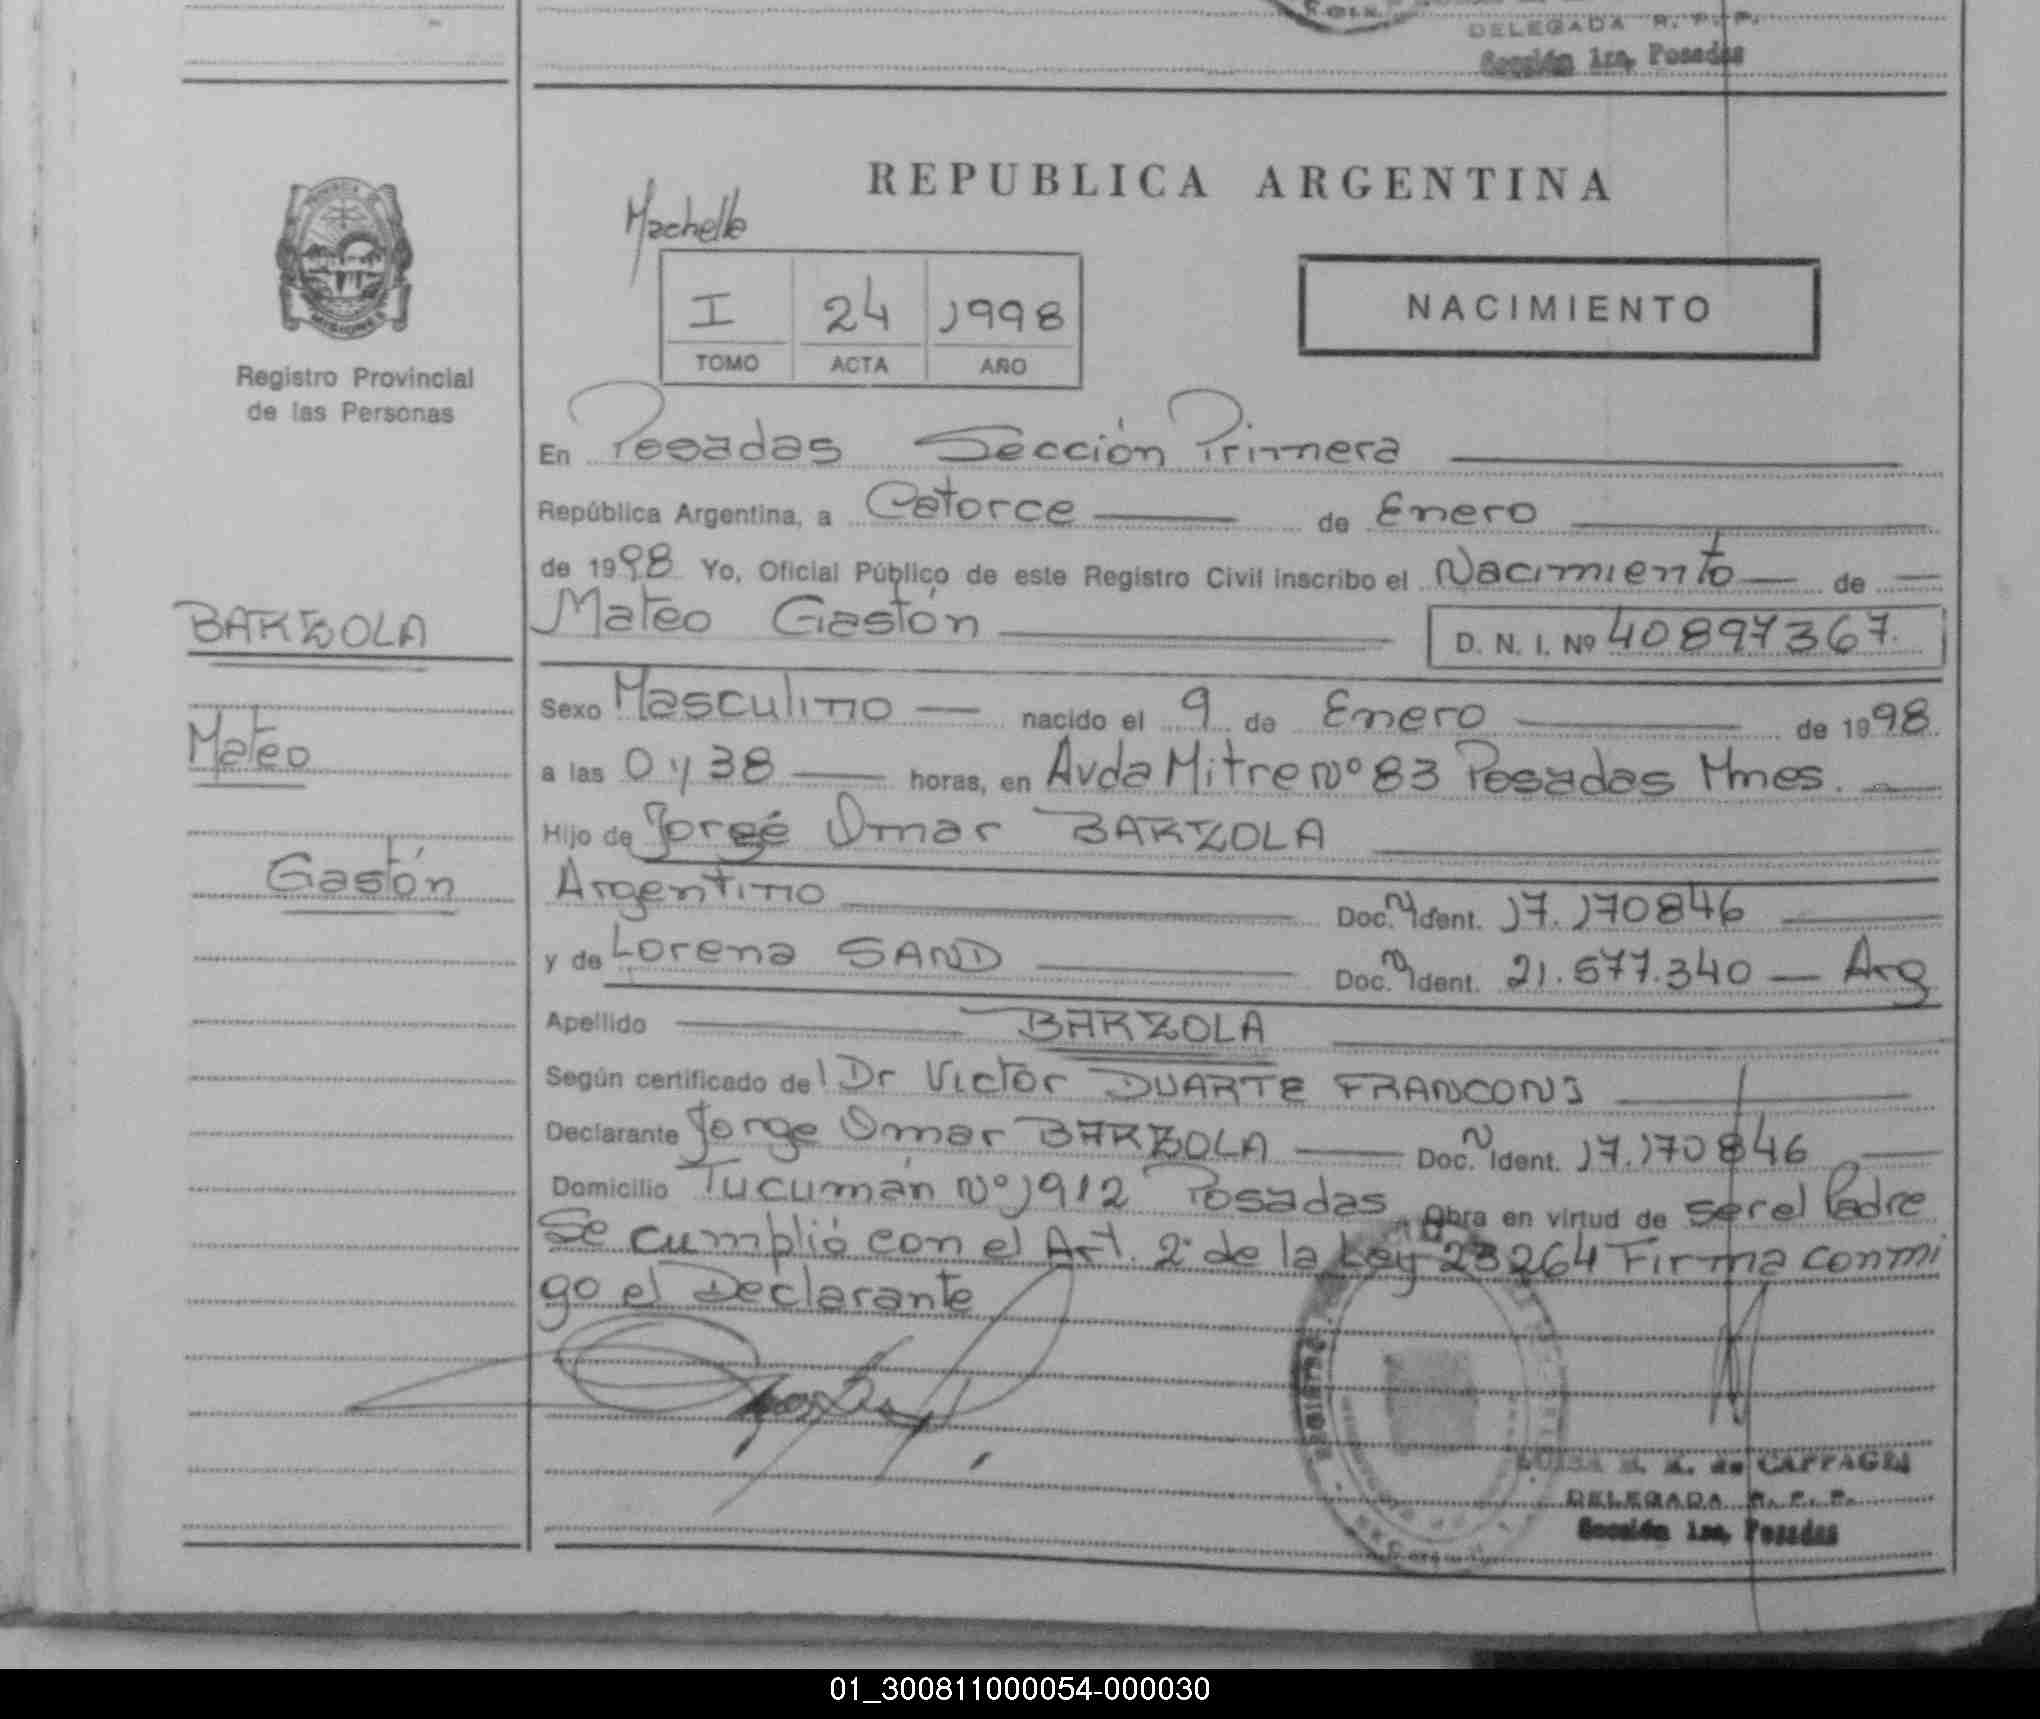 DELEGADA R. P. P.
Sección 1ra. Posadas
REPUBLICA ARGENTINA
Machelle
I 24 1998
TOMO ACTA AÑO
NACIMIENTO
MISIONES
Registro Provincial
de las Personas
En Posadas Sección Primera
República Argentina, a Catorce de Enero
de 1998 Yo, Oficial Público de este Registro Civil inscribo el Nacimiento de
BARZOLA
Mateo Gastón D. N. I. Nº 40897367
Sexo Masculino nacido el 9 de Enero de 1998
Mateo
a las 0 y 38 horas, en Avda Mitre Nº 83 Posadas Mnes.
Hijo de Jorge Omar BARZOLA
Gastón
Argentino Doc. N Ident. 17.170846
y de Lorena SAND Doc. N Ident. 21.577.340 Arg
Apellido BARZOLA
Según certificado del Dr Victor DUARTE FRANCONI
Declarante Jorge Omar BARZOLA Doc. N Ident. 17.170846
Domicilio Tucumán Nº 1912 Posadas Obra en virtud de ser el Padre
Se cumplió con el Art. 2º de la Ley 23264 Firma conmi
go el Declarante
de CAPPAGLI
DELEGADA R. P. P.
Sección 1ra. Posadas
01_300811000054-000030